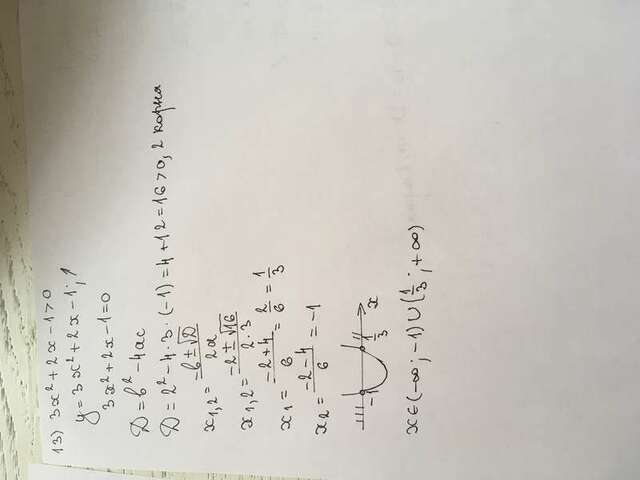 13) 3x² + 2x - 1 > 0
y = 3x² + 2x - 1; ↑
3x² + 2x - 1 = 0
D = b² - 4ac
D = 2² - 4 · 3 · (-1) = 4 + 12 = 16 > 0, 2 корня
x₁,₂ = (-b ± √D)/(2a)
x₁,₂ = (-2 ± √16)/(2 · 3)
x₁ = (-2 + 4)/6 = 2/6 = 1/3
x₂ = (-2 - 4)/6 = -1
-1 1/3 x
x ∈ (-∞; -1) ∪ (1/3; +∞)